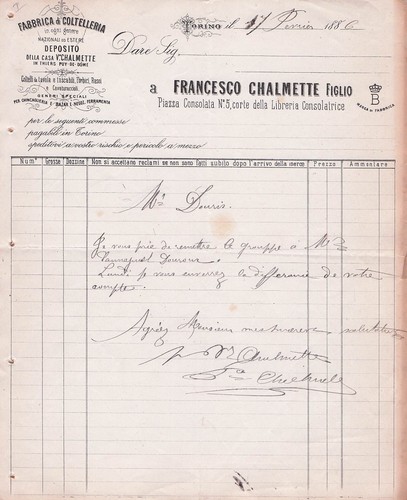 FABBRICA di COLTELLERIA
in ogni genere
NAZIONALI ED ESTERE
DEPOSITO
DELLA CASA Vve CHALMETTE
IN THIERS PUY-DE-DÔME
GENERI SPECIALI
PER CHINCAGLIERIA E BAZAR E NEGOZ. FERRAMENTA
Torino il 17 Février 1886
Dare Sig.
a FRANCESCO CHALMETTE FIGLIO
Piazza Consolata No 5, corte della Libreria Consolatrice
B
MARCA DI FABBRICA
per le seguenti commesse
pagabili in Torino
speditovi a vostro rischio e pericolo a mezzo
Num° Grosse Dozzine Non si accettano reclami se non fatti subito dopo l'arrivo della merce Prezzo Ammontare
Mr Douris
Je vous prie de remettre le grouppe a Mr
Lundi je vous enverrez la différance de votre
compte.
Agréez Monsieur mes sincères salutations
Chalmette